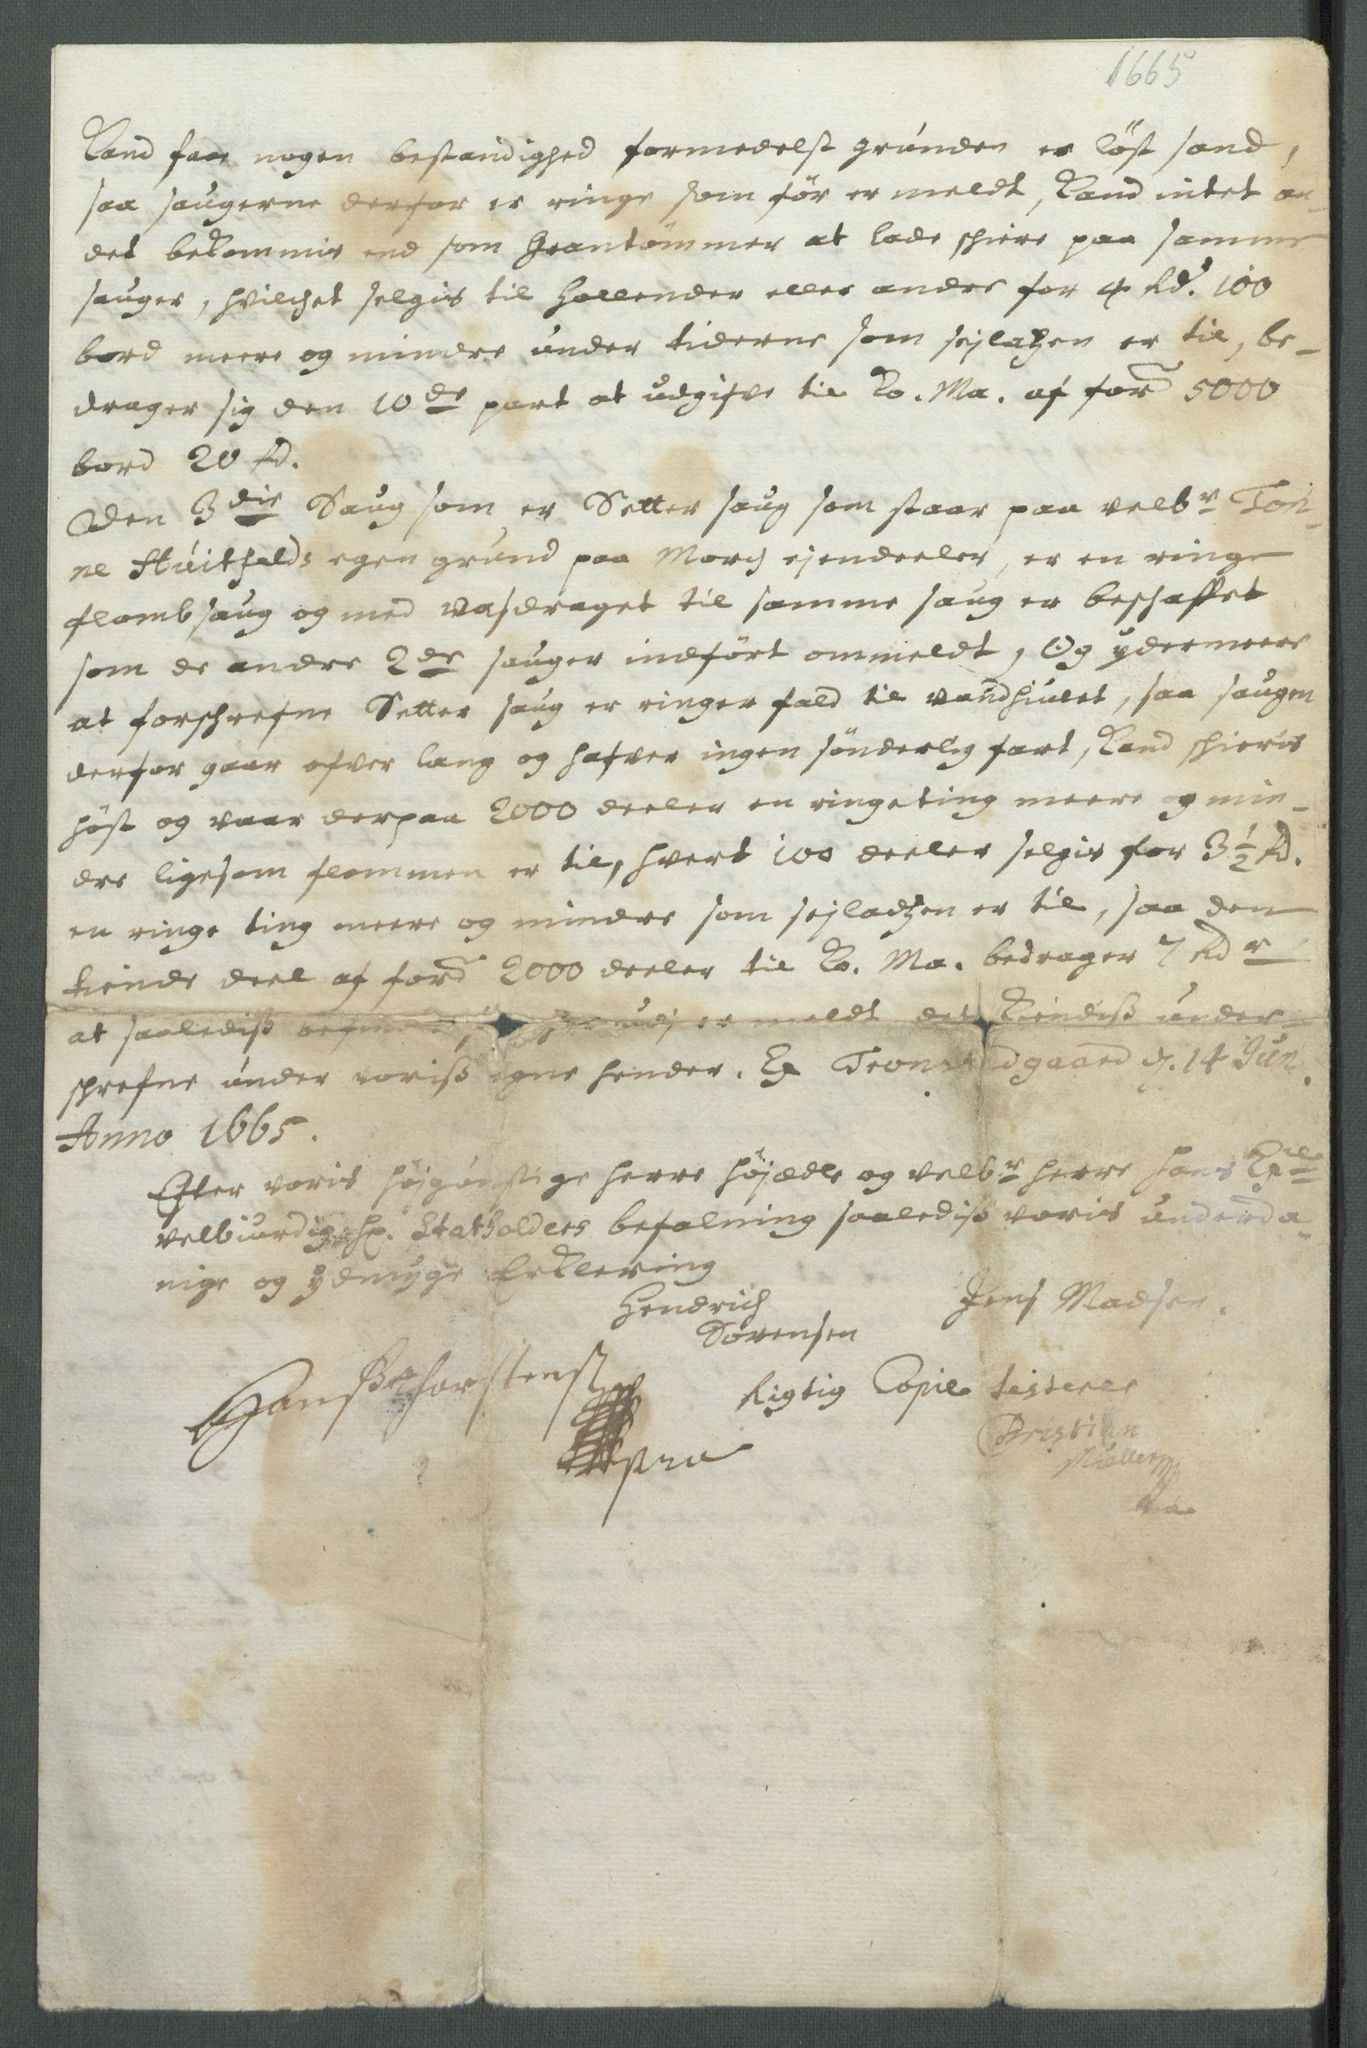 1665
Kand faae nogen bestandighed formedelst grúnden er löst sand,
saa saugerne derfor er ringe som för er meldt, Kand intet an-
det bekommis end som Grantömmer at lade skiere paa samme
sauger, hvilchet selgis til Hollender eller andre for 4 Rd. 100
bord meere og mindre únder tiderne som sejladzen er til, be-
drager sig den 10de part at udgifve til Ko. Ma. af ford 5000
bord 20 Rd.
Den 3die Saug som er Setter saug som staar paa velbr Tön-
ne Húitfelds egen grúnd paa Morch ejendeeler, er en ringe
flombsaug og med vasdraget til samme saug er beschaffet
som de andre 2de sauger indfört ommeldt, Og ydermeere
at forschrefne Setter saug er ringer fald til vandhiúlet, saa saugen
derfor gaar ofver lang og hafver ingen sönderlig fart, Kand skieris
höst og vaar derpaa 2000 deeler en ringe ting meere og min-
dre ligesom flommen er til, hvert 100 deeler selgis for 3 1/2 Rd.
en ringe ting meere og mindre som sejladzen er til, saa den
tiende deel af ford 2000 deeler til Ko. Ma. bedrager 7 Rdr
at saalediss er meldt det Kiendiss under-
schrefne únder voriss egne hender. Ex gaard d. 14 Jun.
Anno 1665.
Efter voris höjgúnstige herre höjædle og velbr herre hans Exle
velbiurdige Hr. Statholders befalning saalediss voris únderda-
nige og ydmyge Erklering
Hendrich Jens Madsen.
Sörensen
Hanss Thorstenss
Rigtig Copie testerer
Christian
Müller